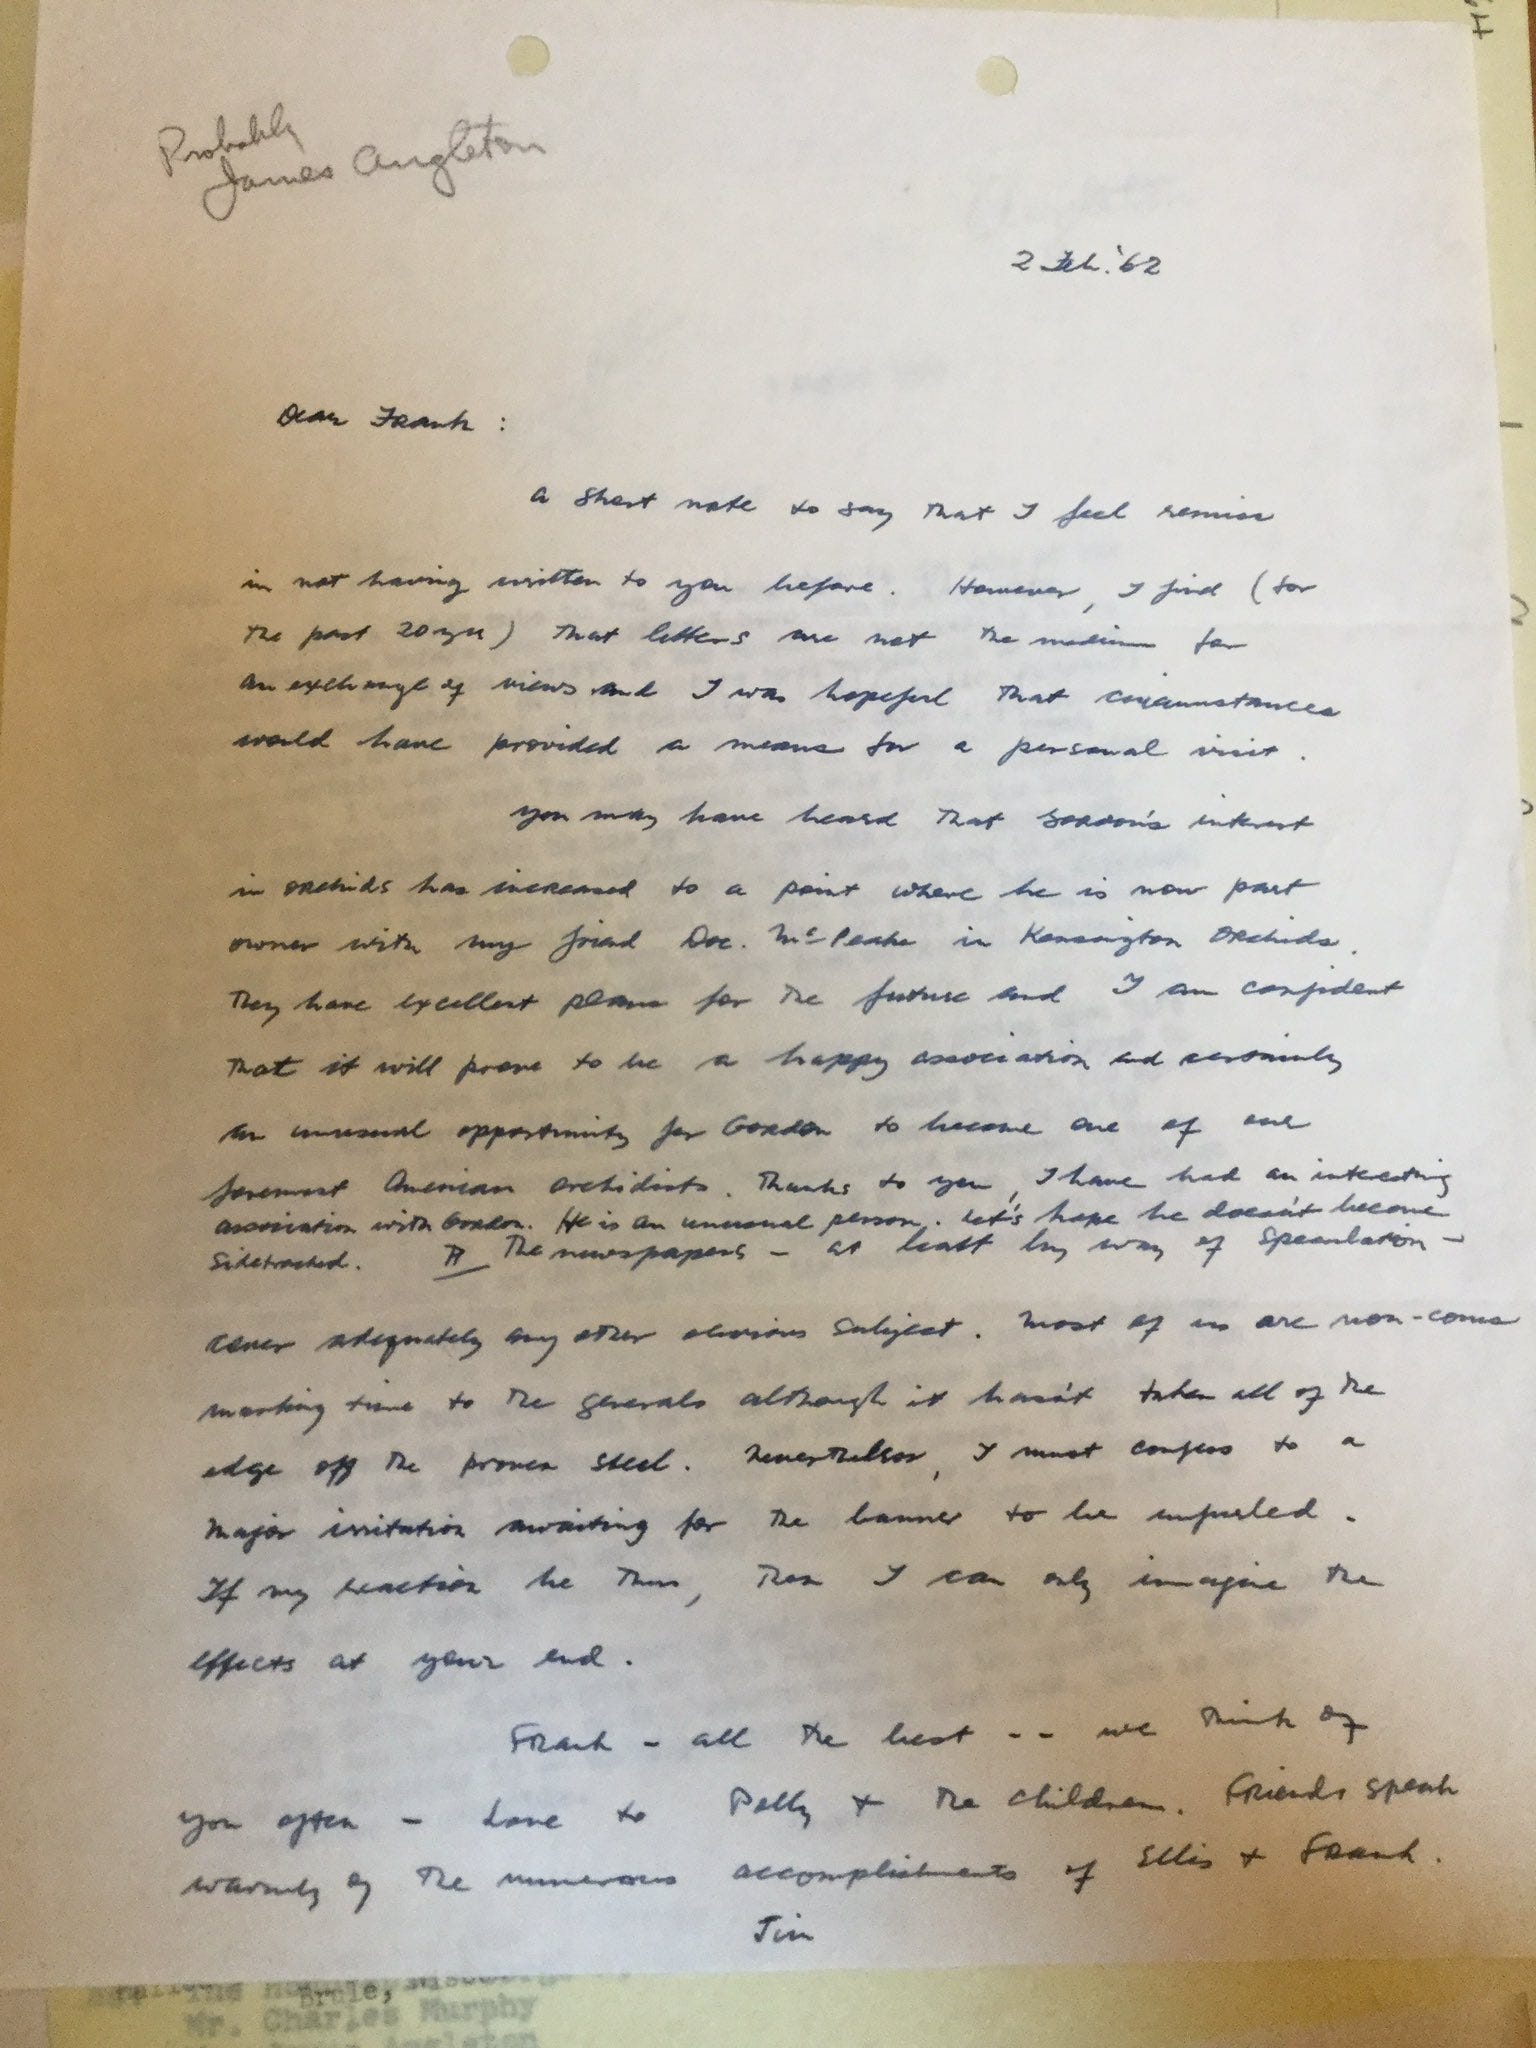 Probably
James Angleton
2 Feb. '62
Dear Frank :
A short note to say that I feel remiss
in not having written to you before. However, I find (for
the past 20 yrs) that letters are not the medium for
an exchange of views and I was hopeful that circumstances
would have provided a means for a personal visit.
You may have heard that Gordon's interest
in orchids has increased to a point where he is now part
owner with my friend Doc. McPeake in Kensington Orchids.
They have excellent plans for the future and I am confident
that it will prove to be a happy association and certainly
an unusual opportunity for Gordon to become one of our
foremost American orchidists. Thanks to you, I have had an interesting
association with Gordon. He is an unusual person. Let's hope he doesn't become
sidetracked. The newspapers – at least by way of speculation –
cover adequately any other obvious subject. Most of us are non-coms
marking time to the generals although it hasn't taken all of the
edge off the proven steel. Nevertheless, I must confess to a
major irritation awaiting for the banner to be unfurled.
If my reaction be thus, then I can only imagine the
effects at your end.
Frank – all the best -- we think of
you often – Love to Polly + the children. Friends speak
warmly of the numerous accomplishments of Ellis + Frank.
Jim
Brule,
Mr. Charles Murphy
Angleton